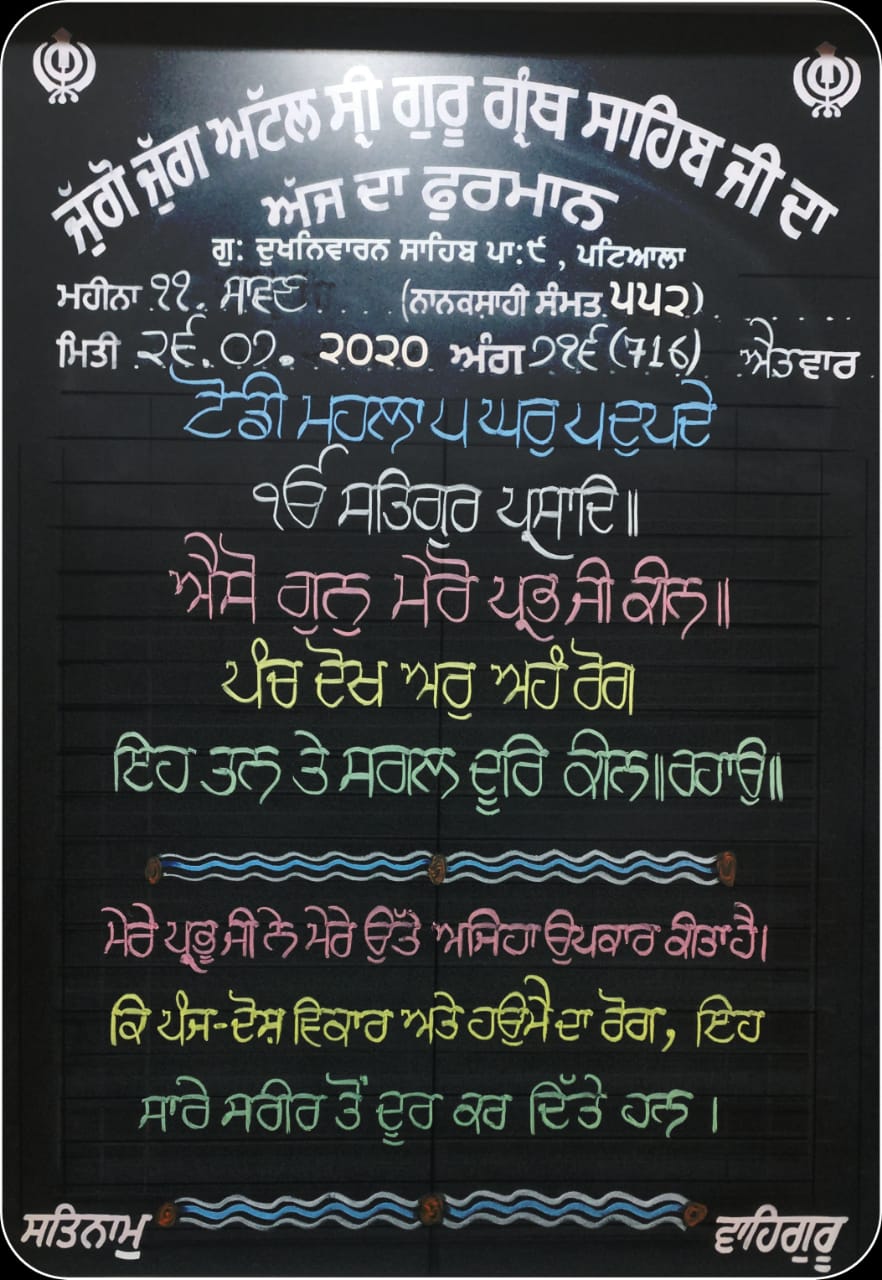 ਜੁੱਗੋ ਜੁੱਗ ਅਟੱਲ ਸ੍ਰੀ ਗੁਰੂ ਗ੍ਰੰਥ ਸਾਹਿਬ ਜੀ ਦਾ
ਅੱਜ ਦਾ ਫੁਰਮਾਨ
ਗੁ: ਦੁਖਨਿਵਾਰਨ ਸਾਹਿਬ ਪਾ:੯ , ਪਟਿਆਲਾ
ਮਹੀਨਾ ੧੧. ਸਾਵਣ (ਨਾਨਕਸ਼ਾਹੀ ਸੰਮਤ ੫੫੨)
ਮਿਤੀ ੨੬.੦੭. ੨੦੨੦ ਅੰਗ ੭੧੬ (716) ਐਤਵਾਰ
ਟੋਡੀ ਮਹਲਾ ੫ ਘਰੁ ੫ ਦੁਪਦੇ
ੴ ਸਤਿਗੁਰ ਪ੍ਰਸਾਦਿ॥
ਐਸੋ ਗੁਨੁ ਮੇਰੋ ਪ੍ਰਭ ਜੀ ਕੀਨ॥
ਪੰਚ ਦੋਖ ਅਰੁ ਅਹੰ ਰੋਗ
ਇਹ ਤਨ ਤੇ ਸਗਲ ਦੂਰਿ ਕੀਨ॥ਰਹਾਉ॥
ਮੇਰੇ ਪ੍ਰਭੂ ਜੀ ਨੇ ਮੇਰੇ ਉੱਤੇ ਅਜਿਹਾ ਉਪਕਾਰ ਕੀਤਾ ਹੈ।
ਕਿ ਪੰਜ-ਦੋਸ਼ ਵਿਕਾਰ ਅਤੇ ਹਉਮੈ ਦਾ ਰੋਗ, ਇਹ
ਸਾਰੇ ਸਰੀਰ ਤੋਂ ਦੂਰ ਕਰ ਦਿੱਤੇ ਹਨ ।
ਸਤਿਨਾਮੁ ਵਾਹਿਗੁਰੂ